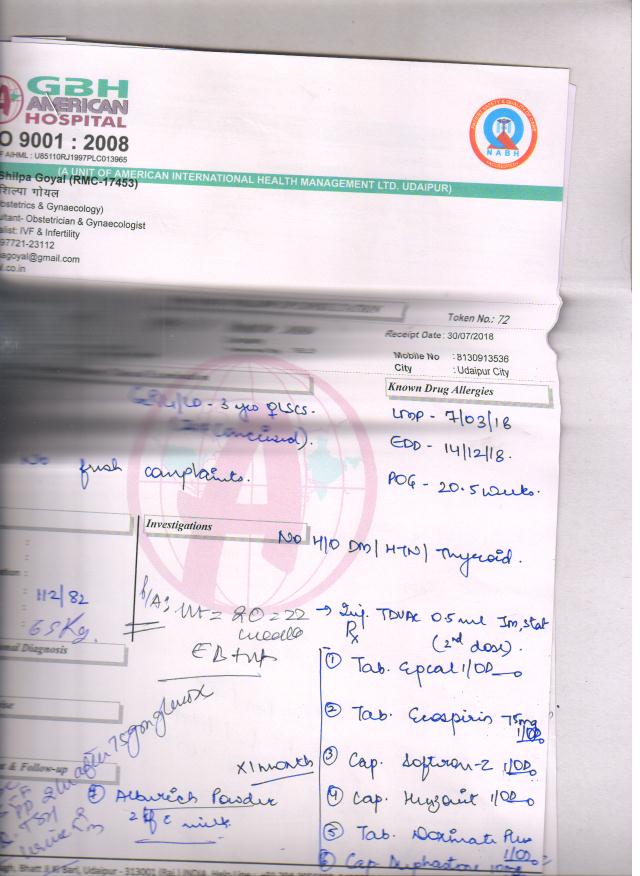 GBH
AMERICAN
HOSPITAL
O 9001 : 2008
F AIHML : U85110RJ1997PLC013965
(A UNIT OF AMERICAN INTERNATIONAL HEALTH MANAGEMENT LTD. UDAIPUR)
NABH
Shilpa Goyal (RMC-17453)
शिल्पा गोयल
bstetrics & Gynaecology)
ultant- Obstetrician & Gynaecologist
alist: IVF & Infertility
97721-23112
agoyal@gmail.com
l.co.in
Token No.: 72
Receipt Date : 30/07/2018
Mobile No : 8130913536
City : Udaipur City
Known Drug Allergies
- 3 yrs ♀ LSCS.
conceived).
LMP - 7/03/18
EDD - 14/12/18.
POG - 20.5 weeks.
No fresh complaints.
Investigations
No H/O DM/HTN/Thyroid.
: 112/82
: 65kg.
P/A: Ut = 20-22
weeks
→ Inj. TDVAC 0.5 ml Im, stat
(2nd dose).
Rx
nal Diagnosis
① Tab. 1/OD
② Tab. Ecosprin 75mg
1/OD
t & Follow-up
75gm glucose
③ Cap. Softron-Z 1/OD
x 1 month
④ Cap. 1/OD
Powder
2 tsf c milk.
TSH
Urine R/m
⑤ Tab. Doxinate Plus
1/OD
⑥ Cap. Duphaston 10mg
agh, Bhatt Ji Ki Bari, Udaipur - 313001 (Raj.) INDIA